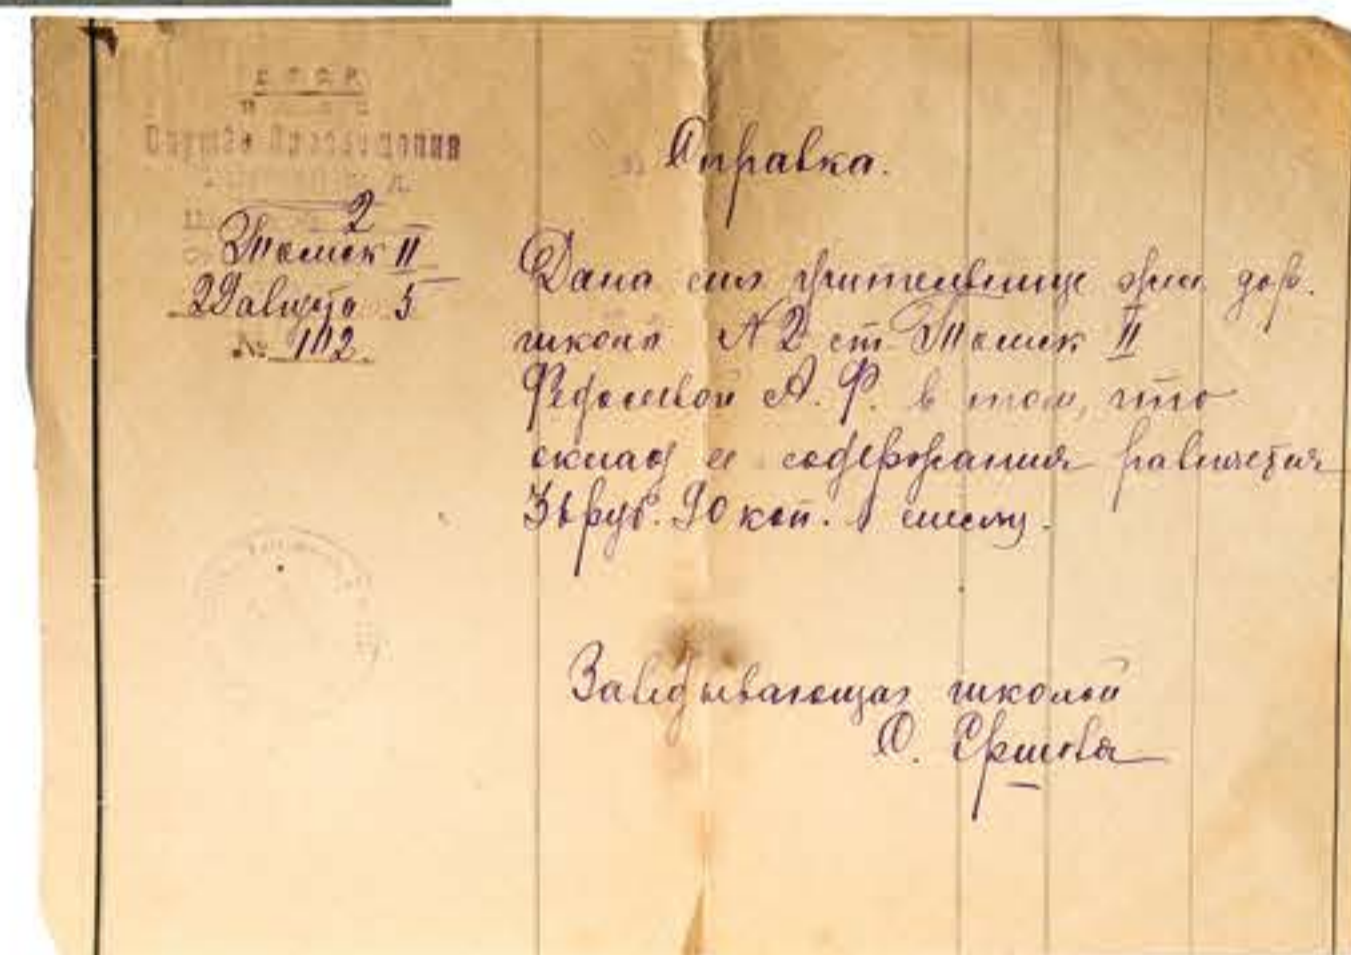 Р.С.Ф.С.Р.
Служба Просвещения
2
Томск II
29 августа 5
№ 112.
Справка.
Дана сия учительнице жел. дор.
школы №2 ст. Томск II
Федосеевой А. Ф. в том, что
оклад ее содержания равняется
36 руб. 90 коп. в месяц.
Заведывающая школой
О. Ершова